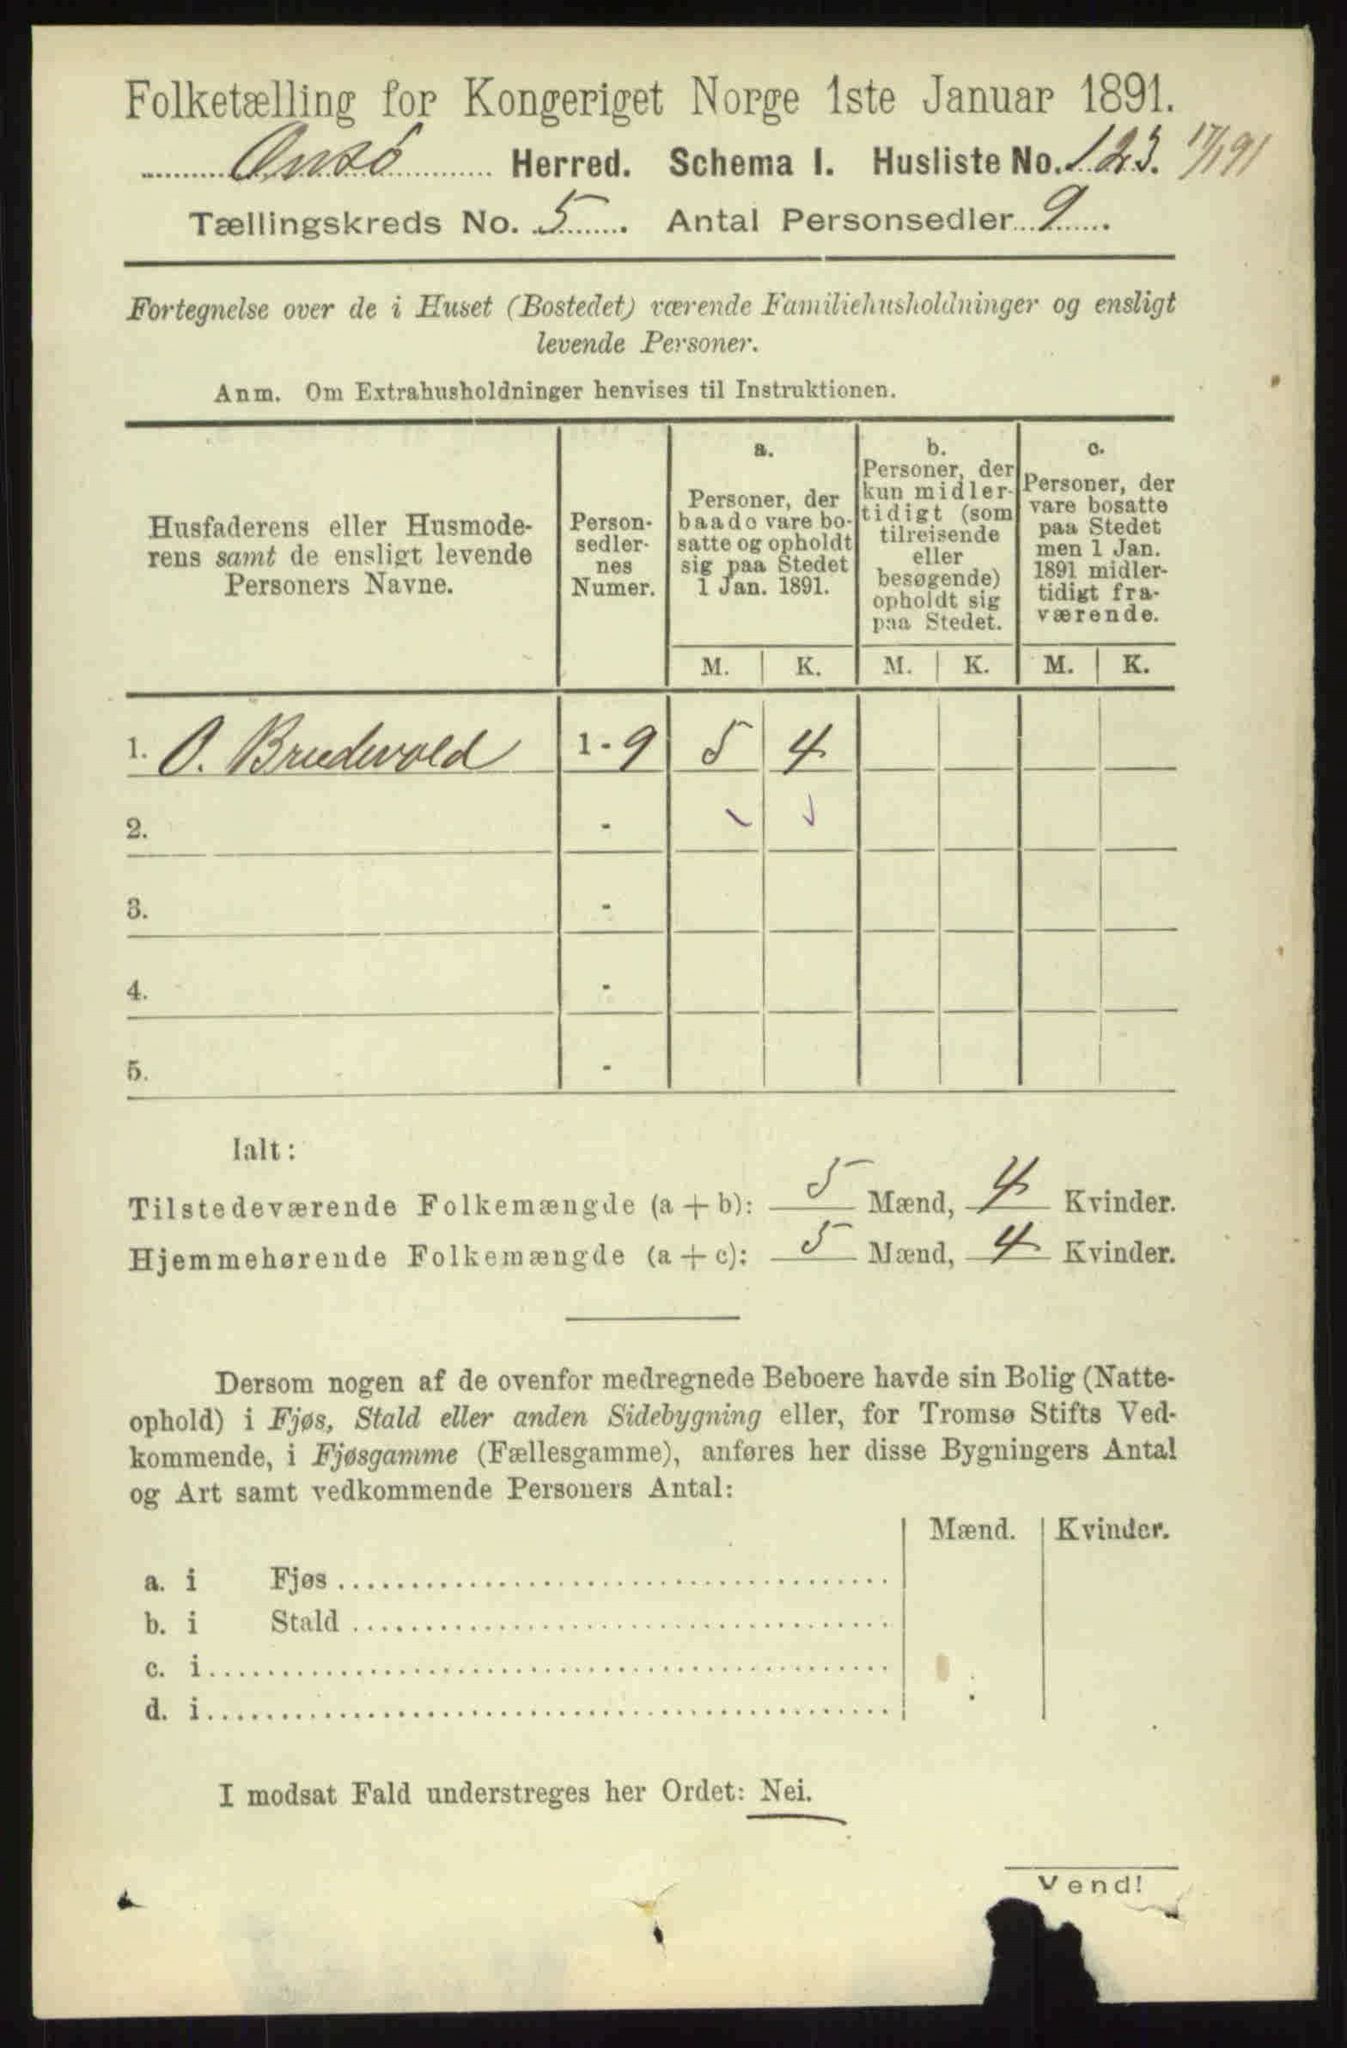 Folketælling for Kongeriget Norge 1ste Januar 1891.
Onsö Herred. Schema I. Husliste No. 123. 17/1 91
Tællingskreds No. 5. Antal Personsedler 9.
Fortegnelse over de i Huset (Bostedet) værende Familiehusholdninger og ensligt
levende Personer.
Anm. Om Extrahusholdninger henvises til Instruktionen.
Husfaderens eller Husmode-
rens samt de ensligt levende
Personers Navne.
Person-
sedler-
nes
Numer.
a.
Personer, der
baade vare bo-
satte og opholdt
sig paa Stedet
1 Jan. 1891.
b.
Personer, der
kun midler-
tidigt (som
tilreisende
eller
besøgende)
opholdt sig
paa Stedet.
c.
Personer, der
vare bosatte
paa Stedet
men 1 Jan.
1891 midler-
tidigt fra-
værende.
M. K. M. K. M. K.
1. O. Bredevold 1 - 9 5 4
2. -
3. -
4. -
5. -
Ialt:
Tilstedeværende Folkemængde (a + b): 5 Mænd, 4 Kvinder.
Hjemmehørende Folkemængde (a + c): 5 Mænd, 4 Kvinder.
Dersom nogen af de ovenfor medregnede Beboere havde sin Bolig (Natte-
ophold) i Fjøs, Stald eller anden Sidebygning eller, for Tromsø Stifts Ved-
kommende, i Fjøsgamme (Fællesgamme), anføres her disse Bygningers Antal
og Art samt vedkommende Personers Antal:
Mænd. Kvinder.
a. i Fjøs
b. i Stald
c. i
d. i
I modsat Fald understreges her Ordet: Nei.
Vend!